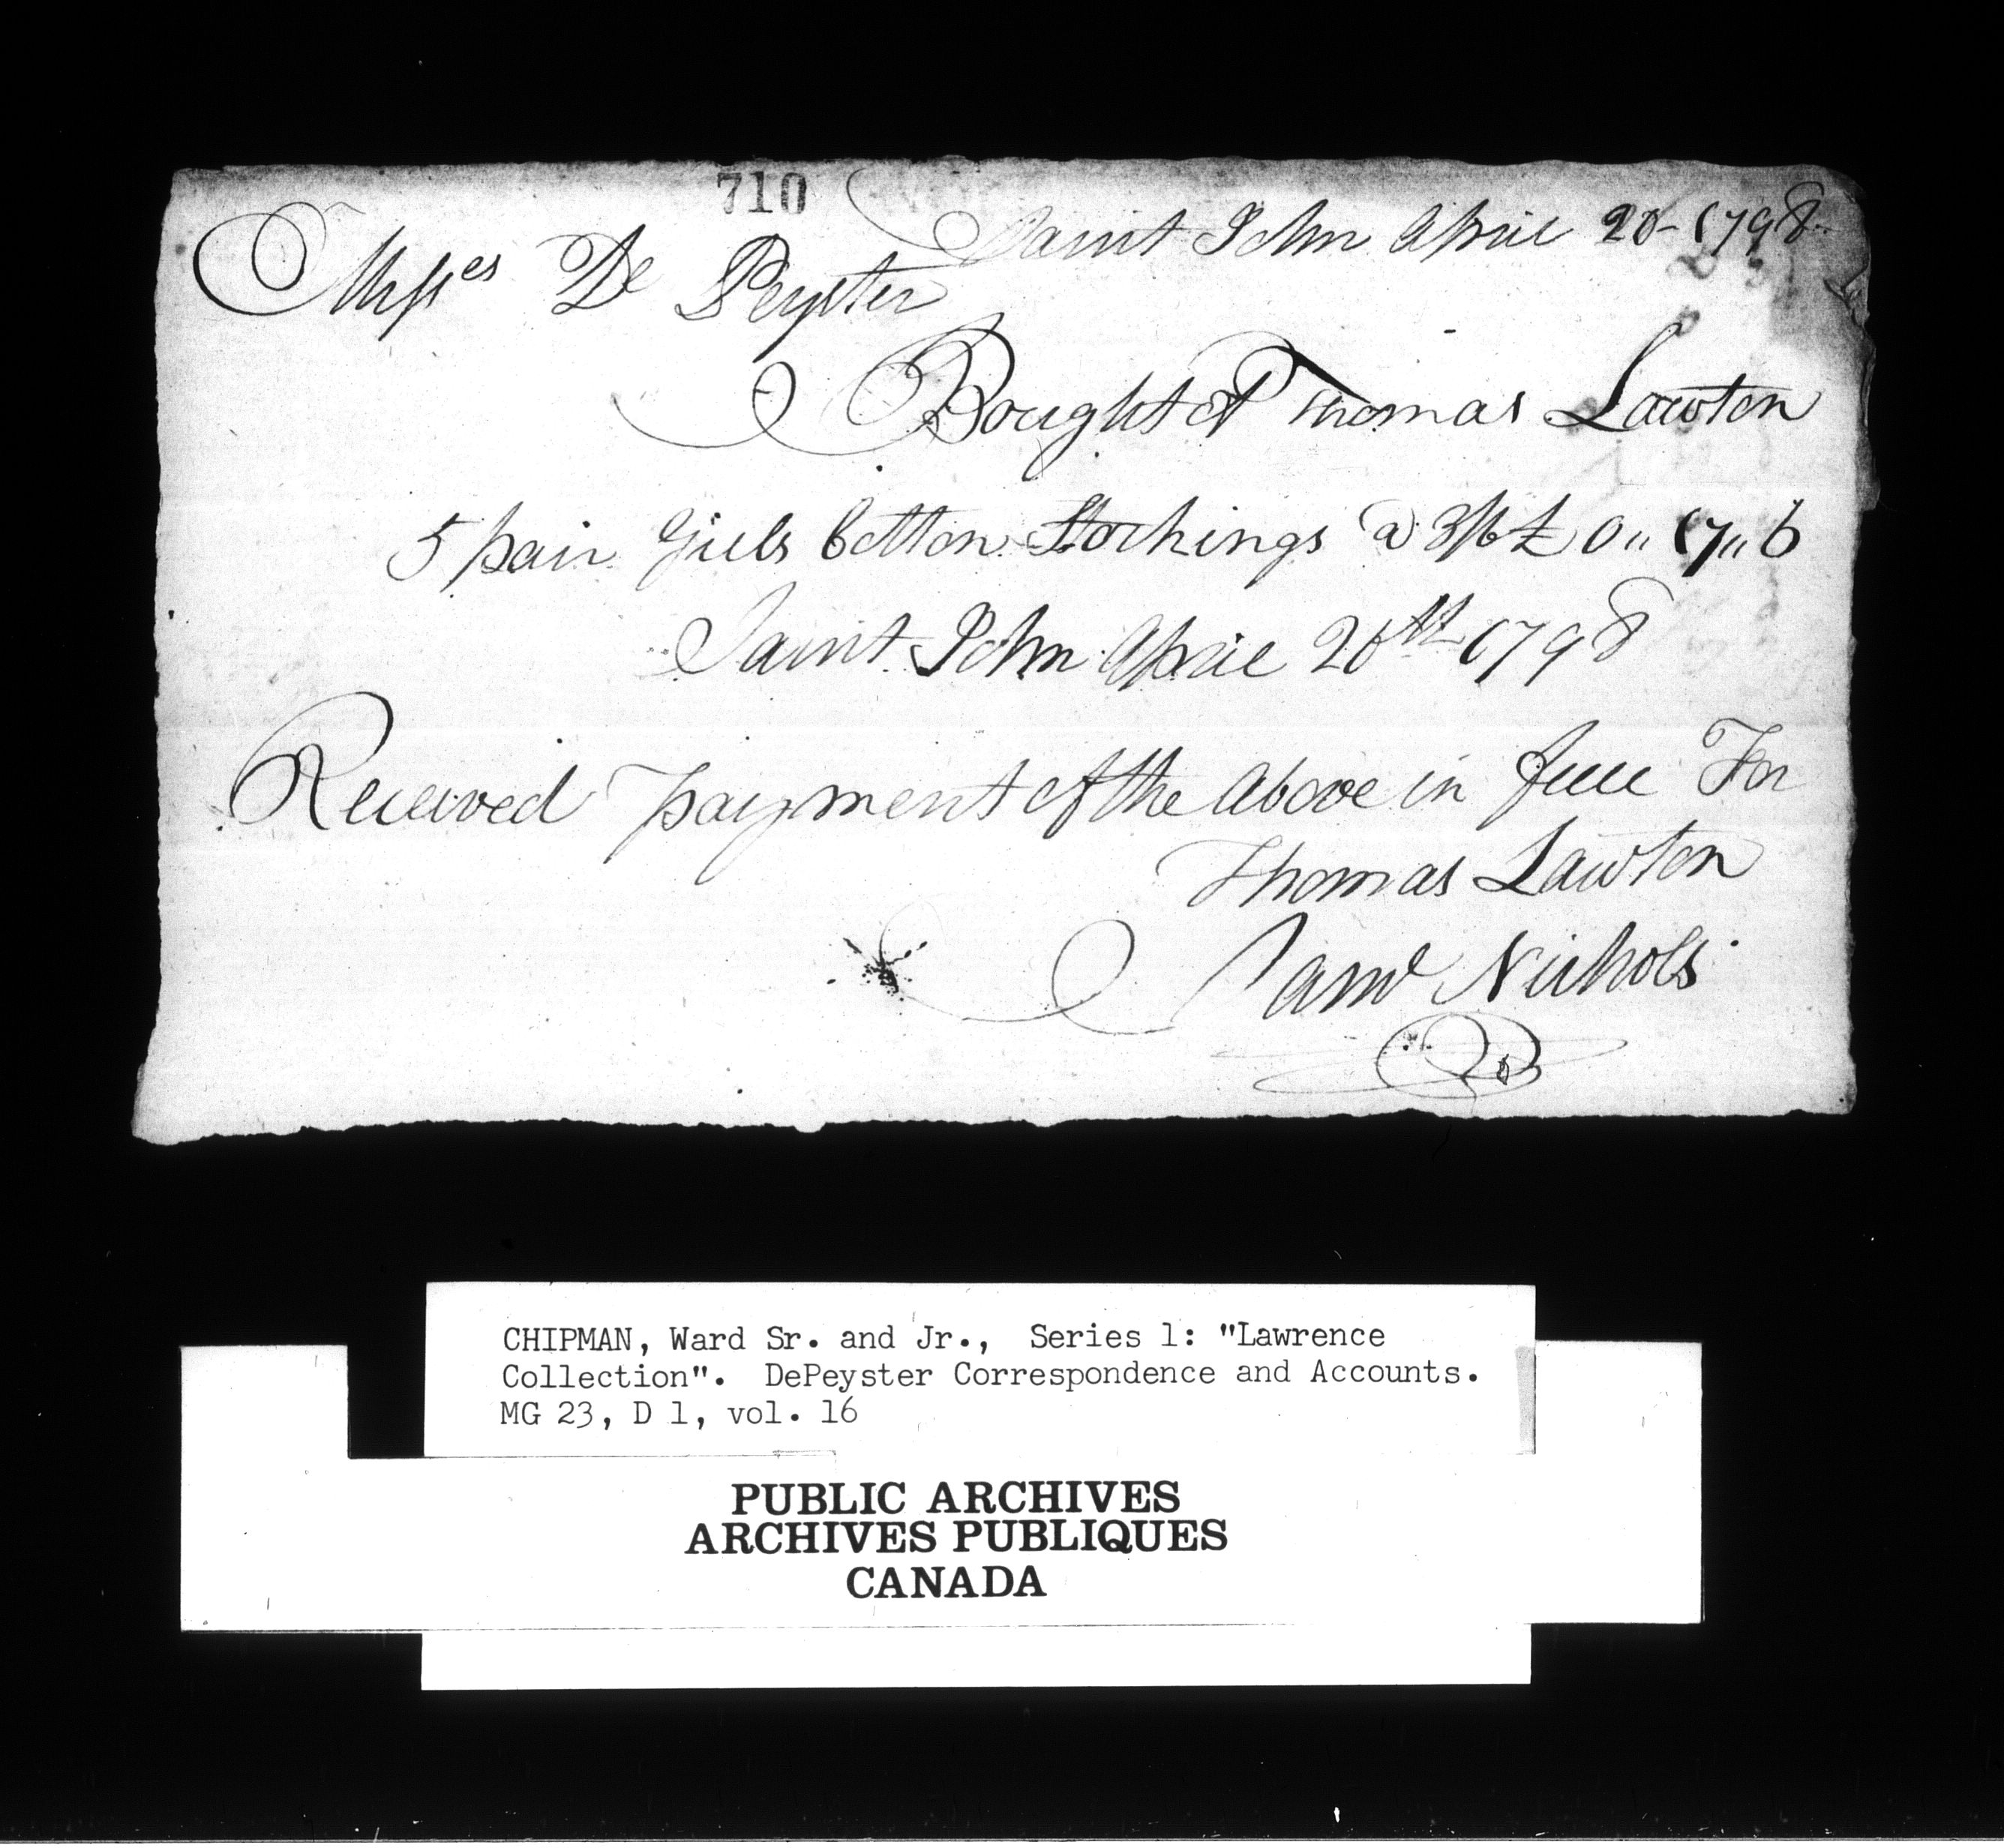 710
Saint John April 20- 1798
Misses De Peyster
Bought of Thomas Lawton
5 pair Girls Cotton Stockings a 3/6 £ 0 " 17 " 6
Saint John April 20th 1798
Received payment of the Above in full For
Thomas Lawton
Saml Nichols
CHIPMAN, Ward Sr. and Jr., Series 1: "Lawrence
Collection". DePeyster Correspondence and Accounts.
MG 23, D 1, vol. 16
PUBLIC ARCHIVES
ARCHIVES PUBLIQUES
CANADA